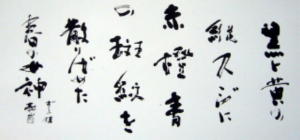 黒と黄の
縦スジに
赤橙青
の斑紋を
散りばせた
春の女神